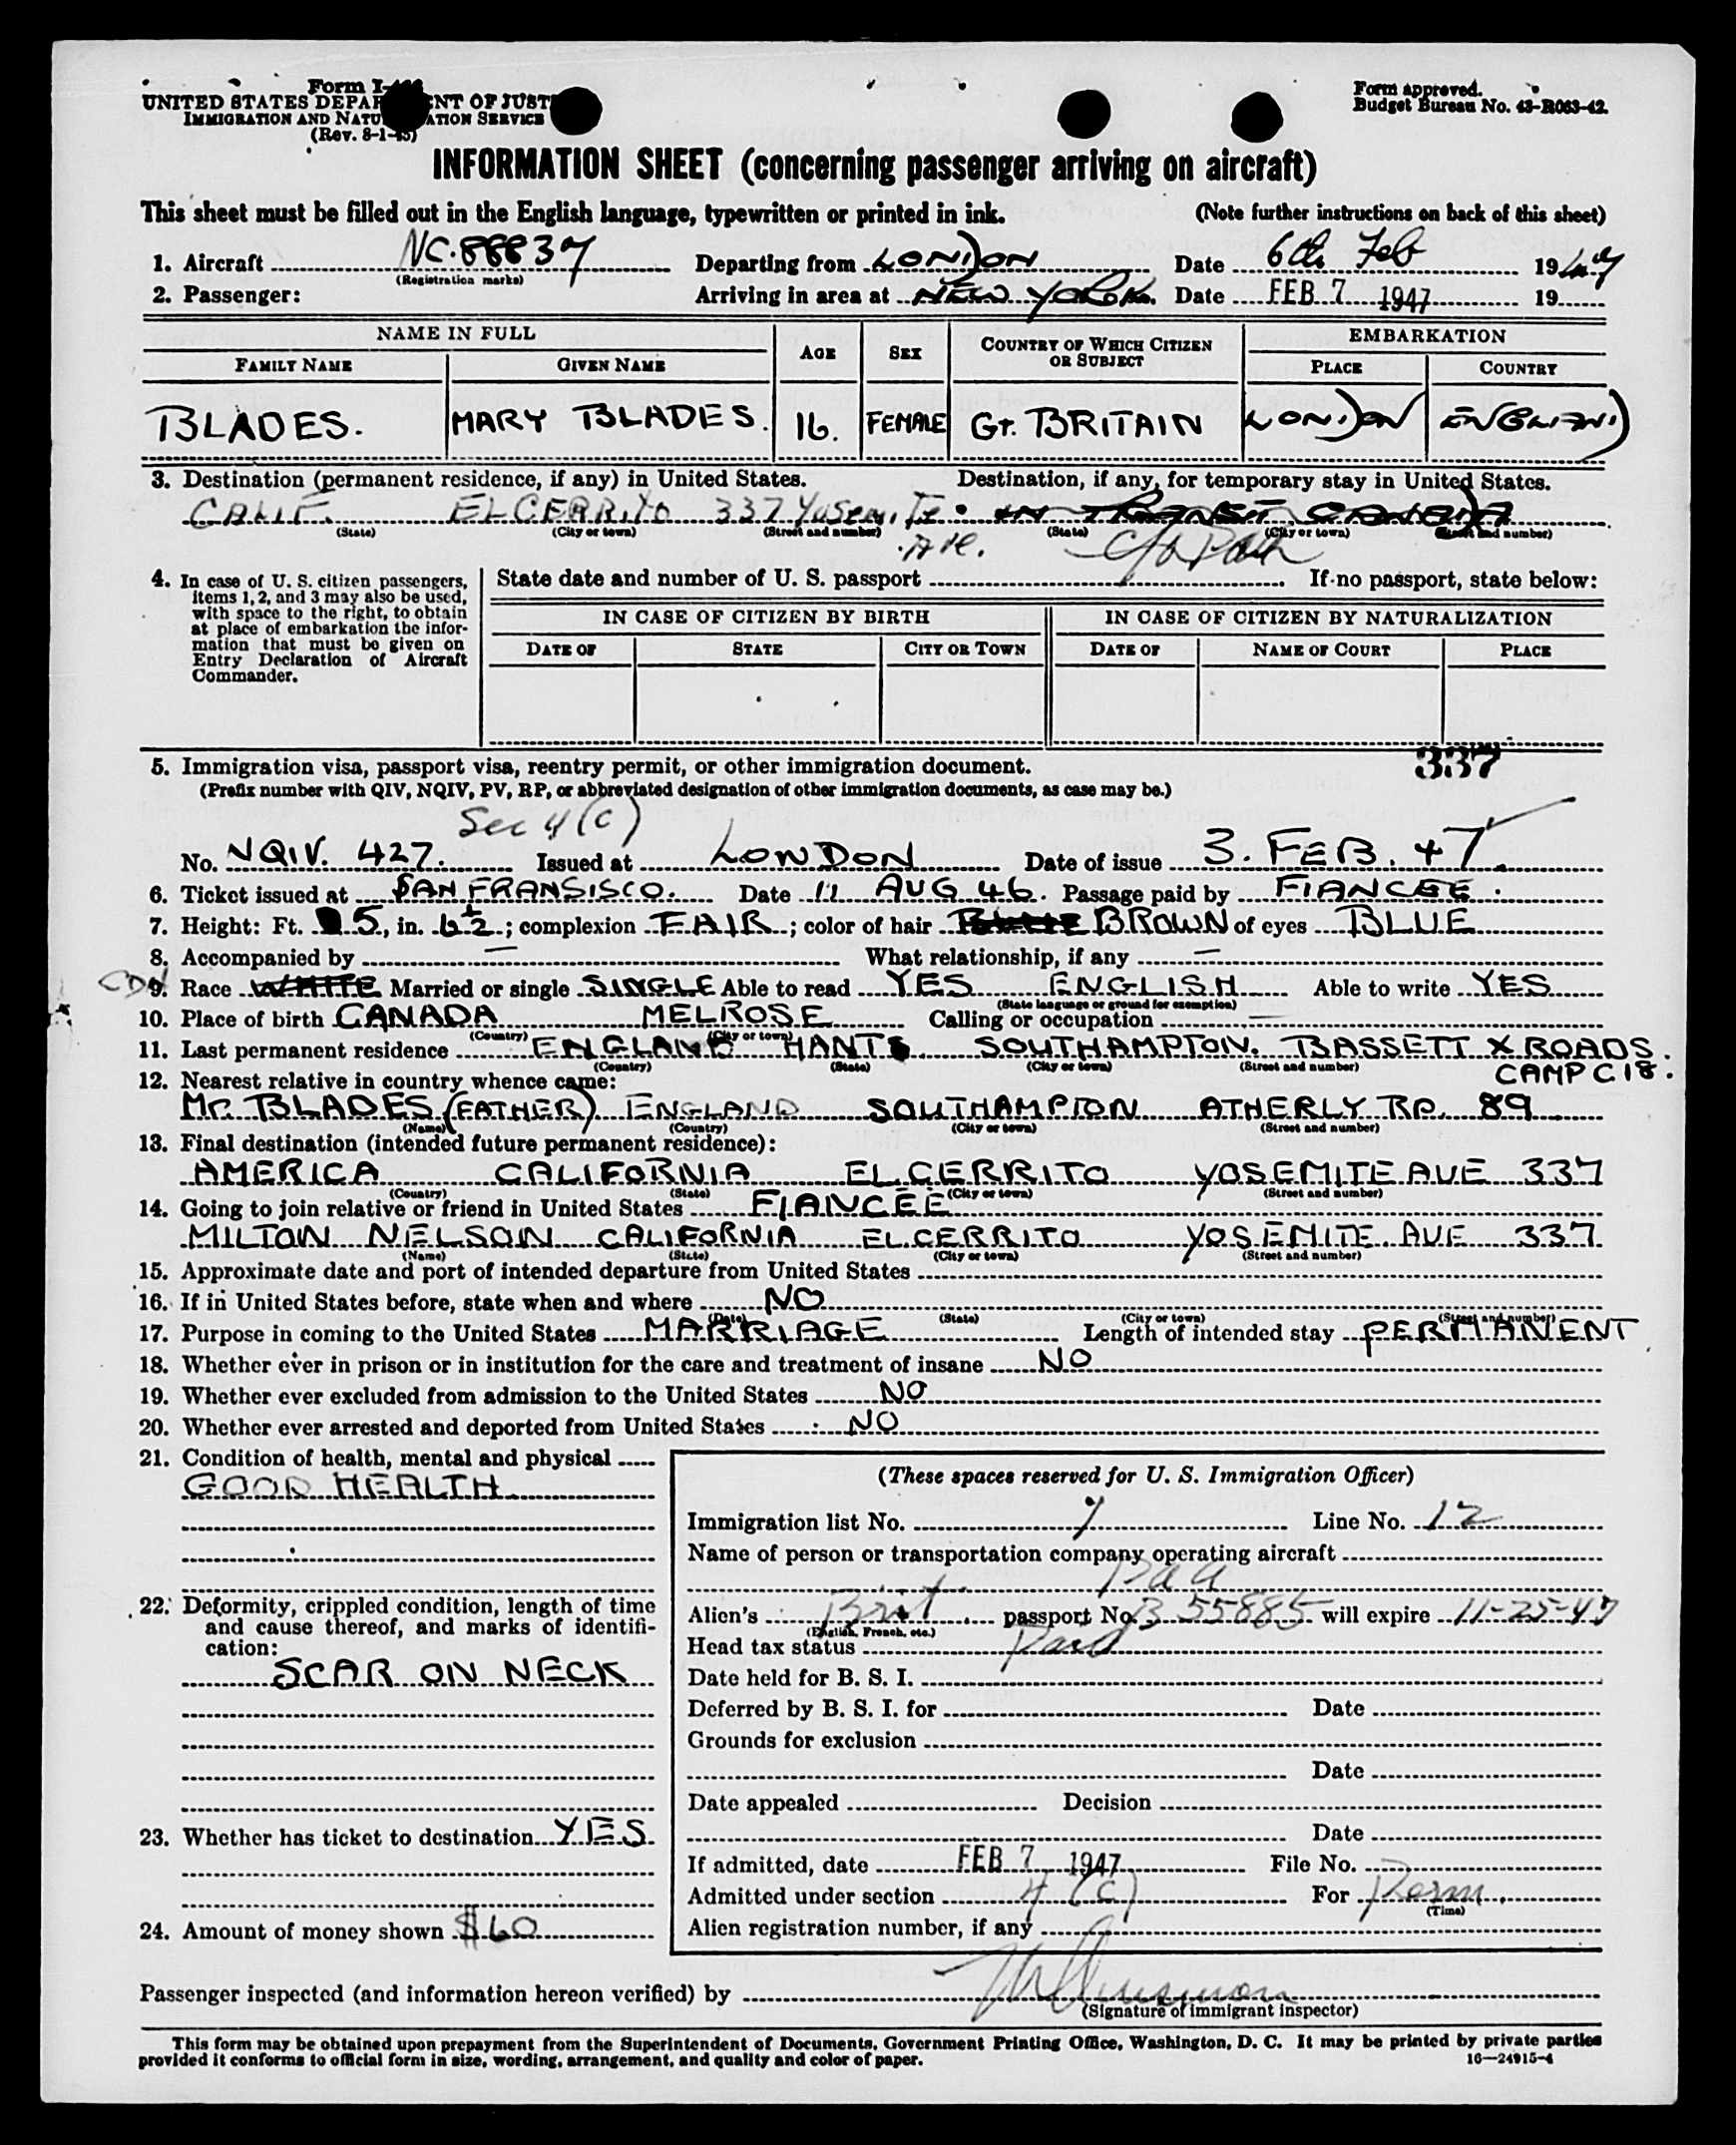 Form I-
UNITED STATES DEPARTMENT OF JUST
IMMIGRATION AND NATURALIZATION SERVICE
(Rev. 8-1-45)
Form approved.
Budget Bureau No. 43-R063-42.
INFORMATION SHEET (concerning passenger arriving on aircraft)
This sheet must be filled out in the English language, typewritten or printed in ink. (Note further instructions on back of this sheet)
1. Aircraft NC.88837 Departing from LONDON Date 6th Feb 1947
(Registration marks)
2. Passenger: Arriving in area at NEW YORK. Date FEB 7 1947 19
NAME IN FULL AGE SEX COUNTRY OF WHICH CITIZEN OR SUBJECT EMBARKATION
FAMILY NAME GIVEN NAME PLACE COUNTRY
BLADES. MARY BLADES. 16. FEMALE GT. BRITAIN LONDON ENGLAND
3. Destination (permanent residence, if any) in United States. Destination, if any, for temporary stay in United States.
CALIF. EL CERRITO 337 Yosemite IN TRANSIT CANADA
(State) (City or town) (Street and number) (State) (City or town) (Street and number)
Ave. C/o
4. In case of U. S. citizen passengers, items 1, 2, and 3 may also be used, with space to the right, to obtain at place of embarkation the information that must be given on Entry Declaration of Aircraft Commander.
State date and number of U. S. passport If no passport, state below:
IN CASE OF CITIZEN BY BIRTH IN CASE OF CITIZEN BY NATURALIZATION
DATE OF STATE CITY OR TOWN DATE OF NAME OF COURT PLACE
337
5. Immigration visa, passport visa, reentry permit, or other immigration document.
(Prefix number with QIV, NQIV, PV, RP, or abbreviated designation of other immigration documents, as case may be.)
Sec 4(c)
No. NQIV. 427. Issued at LONDON Date of issue 3. FEB. 47.
6. Ticket issued at SAN FRANSISCO. Date 11 AUG 46. Passage paid by FIANCEE.
7. Height: Ft. 5, in. 6½; complexion FAIR; color of hair BROWN of eyes BLUE
8. Accompanied by — What relationship, if any —
CDN
9. Race WHITE Married or single SINGLE Able to read YES ENGLISH Able to write YES
(State language or ground for exemption)
10. Place of birth CANADA MELROSE Calling or occupation —
(Country) (City or town)
11. Last permanent residence ENGLAND HANTS. SOUTHAMPTON. BASSETT X ROADS.
(Country) (State) (City or town) (Street and number)
CAMP C18.
12. Nearest relative in country whence came:
Mr. BLADES (FATHER) ENGLAND SOUTHAMPTON ATHERLY RD. 89
(Name) (Country) (City or town) (Street and number)
13. Final destination (intended future permanent residence):
AMERICA CALIFORNIA EL.CERRITO YOSEMITE AVE 337
(Country) (State) (City or town) (Street and number)
14. Going to join relative or friend in United States FIANCÉE
MILTON NELSON CALIFORNIA EL.CERRITO YOSEMITE. AVE 337
(Name) (State) (City or town) (Street and number)
15. Approximate date and port of intended departure from United States
16. If in United States before, state when and where NO
(Date) (State) (City or town) (Street and number)
17. Purpose in coming to the United States MARRIAGE Length of intended stay PERMANENT
18. Whether ever in prison or in institution for the care and treatment of insane NO
19. Whether ever excluded from admission to the United States NO
20. Whether ever arrested and deported from United States NO
21. Condition of health, mental and physical
GOOD HEALTH
22. Deformity, crippled condition, length of time and cause thereof, and marks of identification:
SCAR ON NECK
23. Whether has ticket to destination YES
24. Amount of money shown $60
(These spaces reserved for U. S. Immigration Officer)
Immigration list No. 7 Line No. 12
Name of person or transportation company operating aircraft
PaA
Alien's Brit. passport No. B 55885 will expire 11-25-47
(English, French, etc.)
Head tax status Paid
Date held for B. S. I.
Deferred by B. S. I. for Date
Grounds for exclusion
Date
Date appealed Decision
Date
If admitted, date FEB 7 1947 File No.
Admitted under section 4 (c) For Perm.
(Time)
Alien registration number, if any
Passenger inspected (and information hereon verified) by
(Signature of immigrant inspector)
This form may be obtained upon prepayment from the Superintendent of Documents, Government Printing Office, Washington, D. C. It may be printed by private parties
provided it conforms to official form in size, wording, arrangement, and quality and color of paper. 16—24915-4